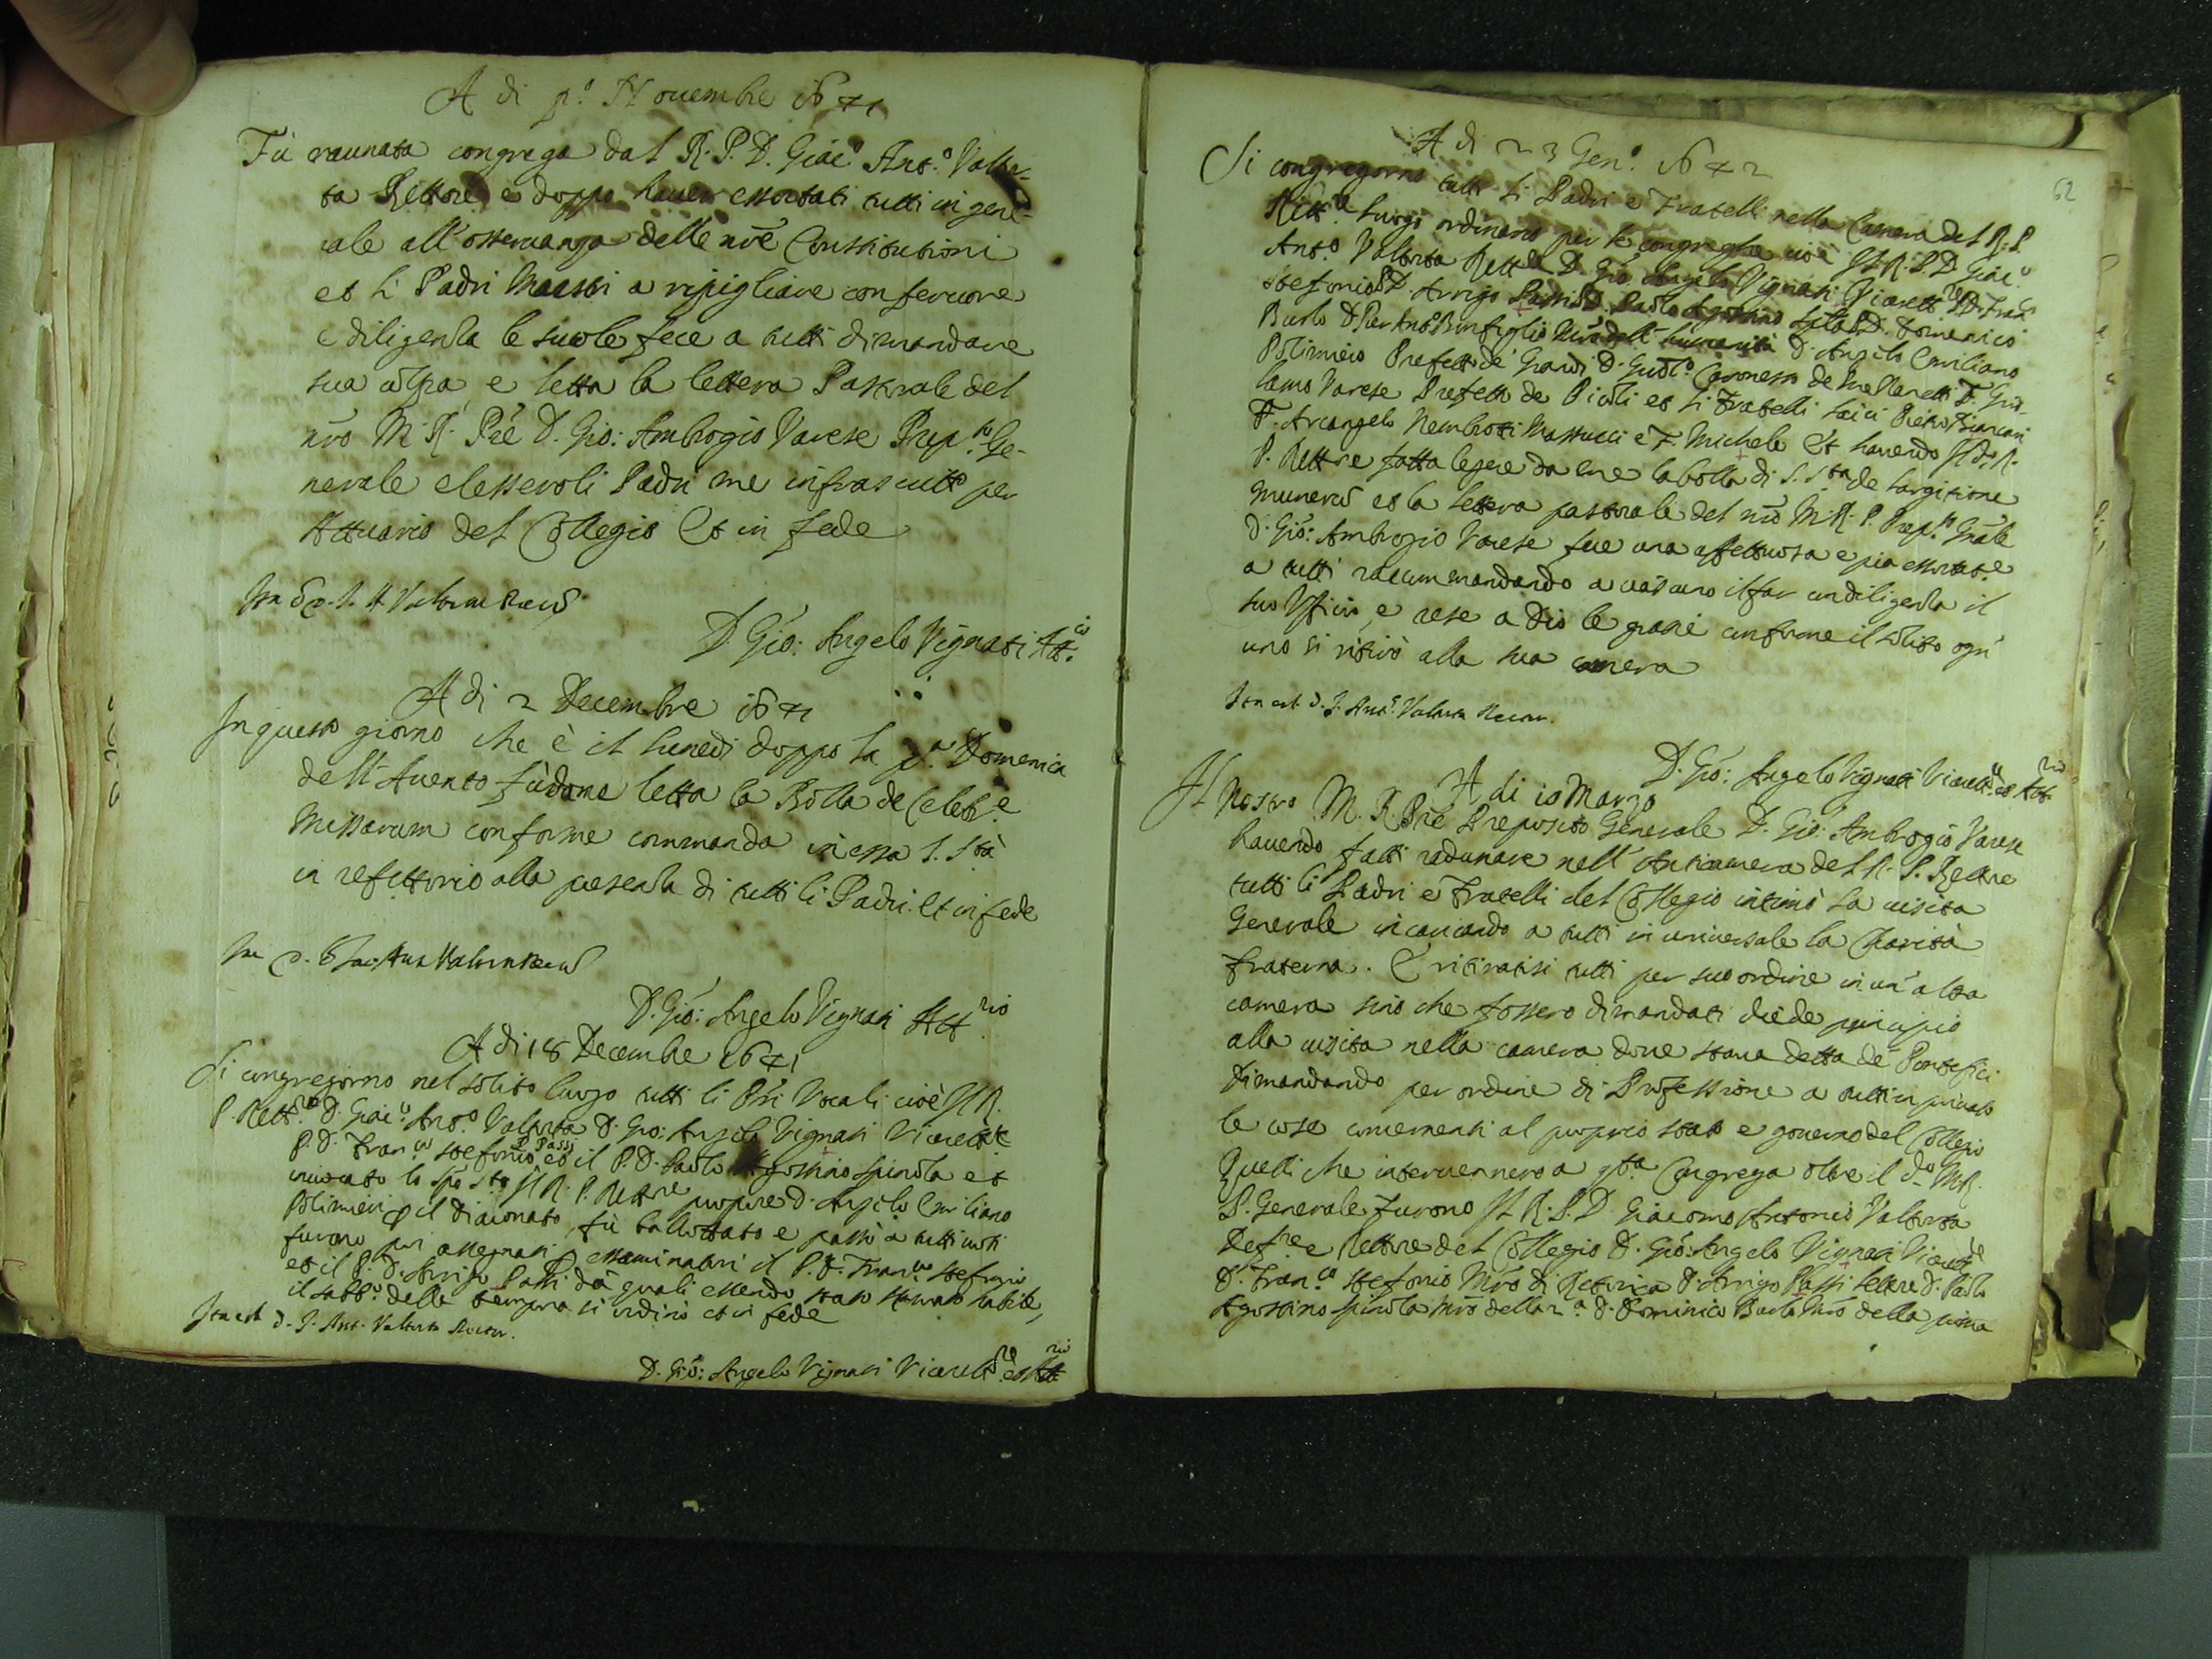 A di p.º Novembre 1641
Fù raunata congrega dal R. P. D. Giac.º Ant.º Valtor-
ta Rettore e doppo haver essortati tutti in gene-
rale all'osservanza delle nrē Constitutioni
et li Padri Maestri a ripigliare con fervore
e diligenza le scuole fece a tutti dimandare
sua colpa, e letta la lettera Pastorale del
nr̄o M. R. Prē D. Gio: Ambrogio Varese Prep.to Ge-
nerale elesse voli Padri me infrascritto per
Attuario del Collegio Et in fede
D. Gio: Angelo Vignati Att.
A di 2 Decembre 1641
In questo giorno che è il lunedi doppo la p.ª Domenica
dell'Avento fù letta la Bolla de Celebr.e
Missarum conforme commanda in essa S. Stà
in refettorio alla presenza di tutti li Padri. Et in fede
D. Gio: Angelo Vignati Att.rio
A di 18 Decembre 1641
Si congregorno nel solito luogo tutti li Pri Vocali cioè Il R.
P. Rett.re D. Giac.º Ant.º Valtorta D. Gio: Angelo Vignati Vicerett.re
P. D. Fran.co Stefonio P. Passi et il P. D. Paolo Agostino Spinola et
invocato lo Spō Sto Il R. P. Rettore propose D. Angelo Emiliano
Polimieri p il diaconato, fù ballottato e passò a tutti voti
furono poi assegnati p essaminatori il P. D. Fran.co Stefonio
et il P. D. Arrigo Passi da quali essendo stato stimato habile,
il sabb.º delle tempora si ordinò et in fede
Ita est D. J. Ant. Valtorta Rector.
D. Gio: Angelo Vignati Vicerett.re et Att.rio
62
A di 23 Gen.º 1642
Si congregorno tutti li Padri e Fratelli nella Camera del R. P.
Rett.re luogo ordinario per le congreghe cioè Il R. P. D. Giac.º
Ant.º Valtorta Rett.re D. Gio: Angelo Vignati Vicerett.re P. D. Fran.co
Stefonio P. D. Arrigo Passi P. D. Paolo Agostino P. D. Domenico
Barlo D. Pier Ant.º Bonfiglio Mrō dell'humanità D. Angelo Emiliano
Polimiero Prefetto de Grandi D. Gugl.º Caronesso de Mezzanetti D. Giro-
lamo Varese Prefetto de Picoli et li Fratelli laici Pietro Biancari
F. Arcangelo Nembrotti Mattucci e F. Michele Et havendo Il d.º R.
P. Rettore fatta legere da me la bolla di S. Stà de largitione
munerum et la lettera pastorale del nrō M. R. P. Prep.to Gnāle
D. Gio: Ambrogio Varese fece una affettuosa e pia essortat.e
a tutti racommandando a ciascuno il far con diligenza il
suo Ufficio, e rese a Dio le gratie conforme il solito ogn'
uno si ritirò alla sua camera
Ita est D. J. Ant. Valtorta Rector.
D. Gio: Angelo Vignati Vicerett.re et Att.rio
A di 10 Marzo
Il Nostro M. R. Prē Preposito Generale D. Gio: Ambrogio Varese
havendo fatti radunare nell'Anticamera del R. P. Rettore
tutti li Padri e Fratelli del Collegio intimò la visita
Generale incaricando a tutti in universale la Charità
fraterna. E ritiratisi tutti per suo ordine in un'altra
camera sino che fossero dimandati diede principio
alla visita nella camera dove stava detta de Pontefici
dimandando per ordine di Professione a tutti in privato
le cose concernenti al proprio stato e governo del Collegio
Quelli che intervennero a q.ta Congrega oltre il d.º M. R.
P. Generale furono Il R. P. D. Giacomo Antonio Valtorta
Def.re e Rettore del Collegio D. Gio: Angelo Vignati Vicerett.re
D. Fran.co Stefonio Mrō di Retorica D. Arrigo Passi lettore D. Paolo
Agostino Spinola Mrō della 2.ª D. Dominico Barlo Mrō della prima